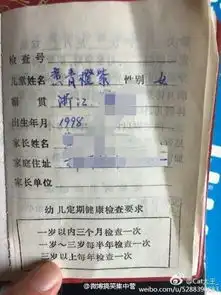 检查号
儿童姓名 黄青橙紫 性别 女
籍 贯 浙江
出生年月 1998
家长姓名
家庭住址
家长单位
幼儿定期健康检查要求
一岁以内三个月检查一次
一岁～三岁每半年检查一次
三岁以上每年检查一次
@微博搞笑集中营
@Cat大王
weibo.com/u/528839